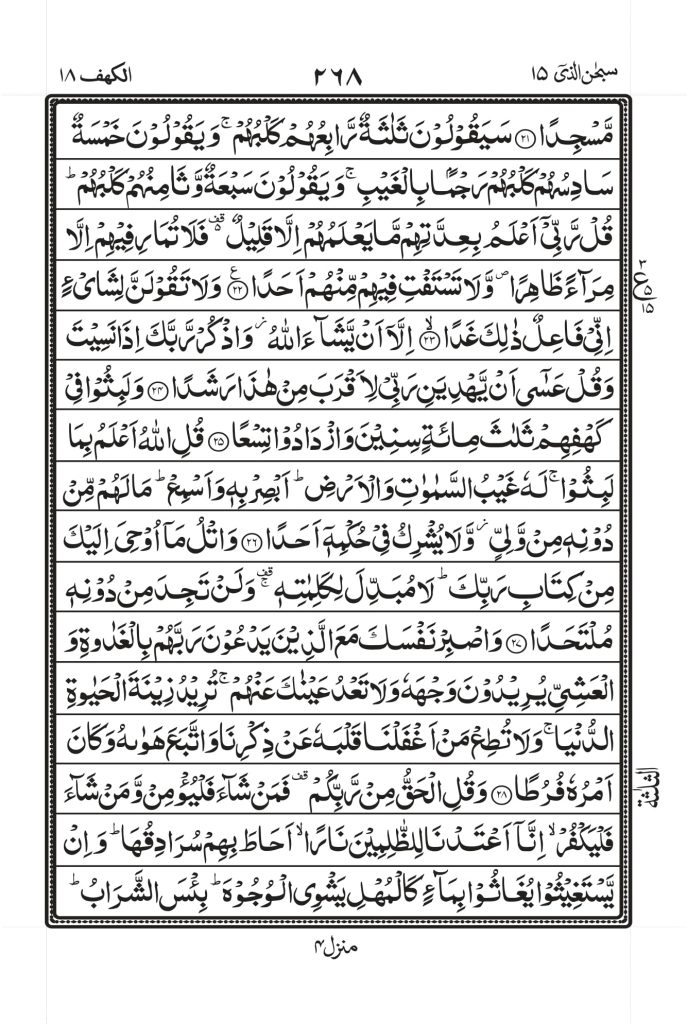 سبحٰن الذیٓ ۱۵
۲۶۸
الکهف ۱۸
مَّسْجِدًا ﴿۲۱﴾ سَيَقُوْلُوْنَ ثَلٰثَةٌ رَّابِعُهُمْ كَلْبُهُمْ ۚ وَيَقُوْلُوْنَ خَمْسَةٌ
سَادِسُهُمْ كَلْبُهُمْ رَجْمًۢا بِالْغَيْبِ ۚ وَيَقُوْلُوْنَ سَبْعَةٌ وَّثَامِنُهُمْ كَلْبُهُمْ ؕ
قُلْ رَّبِّيْۤ اَعْلَمُ بِعِدَّتِهِمْ مَّا يَعْلَمُهُمْ اِلَّا قَلِيْلٌ ۫ قف فَلَا تُمَارِ فِيْهِمْ اِلَّا
مِرَآءً ظَاهِرًا ص وَّلَا تَسْتَفْتِ فِيْهِمْ مِّنْهُمْ اَحَدًا ﴿۲۲﴾ ع وَلَا تَقُوْلَنَّ لِشَایْءٍ
۳
ع
۵
۱۵
اِنِّيْ فَاعِلٌ ذٰلِكَ غَدًا ﴿۲۳﴾ۙ اِلَّاۤ اَنْ يَّشَآءَ اللّٰهُ ز وَاذْكُرْ رَّبَّكَ اِذَا نَسِيْتَ
وَقُلْ عَسٰۤى اَنْ يَّهْدِيَنِ رَبِّيْ لِاَقْرَبَ مِنْ هٰذَا رَشَدًا ﴿۲۴﴾ وَلَبِثُوْا فِيْ
كَهْفِهِمْ ثَلٰثَ مِائَةٍ سِنِيْنَ وَازْدَادُوْا تِسْعًا ﴿۲۵﴾ قُلِ اللّٰهُ اَعْلَمُ بِمَا
لَبِثُوْا ۚ لَهٗ غَيْبُ السَّمٰوٰتِ وَالْاَرْضِ ؕ اَبْصِرْ بِهٖ وَاَسْمِعْ ؕ مَا لَهُمْ مِّنْ
دُوْنِهٖ مِنْ وَّلِيٍّ ز وَّلَا يُشْرِكُ فِيْ حُكْمِهٖۤ اَحَدًا ﴿۲۶﴾ وَاتْلُ مَاۤ اُوْحِيَ اِلَيْكَ
مِنْ كِتَابِ رَبِّكَ ؕ لَا مُبَدِّلَ لِكَلِمٰتِهٖ ۚ قف وَلَنْ تَجِدَ مِنْ دُوْنِهٖ
مُلْتَحَدًا ﴿۲۷﴾ وَاصْبِرْ نَفْسَكَ مَعَ الَّذِيْنَ يَدْعُوْنَ رَبَّهُمْ بِالْغَدٰوةِ وَ
الْعَشِيِّ يُرِيْدُوْنَ وَجْهَهٗ وَلَا تَعْدُ عَيْنٰكَ عَنْهُمْ ۚ تُرِيْدُ زِيْنَةَ الْحَيٰوةِ
الدُّنْيَا ۚ وَلَا تُطِعْ مَنْ اَغْفَلْنَا قَلْبَهٗ عَنْ ذِكْرِنَا وَاتَّبَعَ هَوٰىهُ وَكَانَ
اَمْرُهٗ فُرُطًا ﴿۲۸﴾ وَقُلِ الْحَقُّ مِنْ رَّبِّكُمْ قف فَمَنْ شَآءَ فَلْيُؤْمِنْ وَّمَنْ شَآءَ
الثلٰثة
فَلْيَكْفُرْ ۙ اِنَّاۤ اَعْتَدْنَا لِلظّٰلِمِيْنَ نَارًا ۙ اَحَاطَ بِهِمْ سُرَادِقُهَا ؕ وَاِنْ
يَّسْتَغِيْثُوْا يُغَاثُوْا بِمَآءٍ كَالْمُهْلِ يَشْوِي الْوُجُوْهَ ؕ بِئْسَ الشَّرَابُ ؕ
منزل ۴